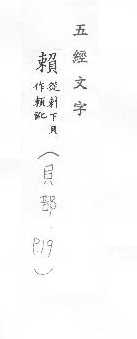 五經文字
賴
從刺下貝
作頼訛
（貝部．P.19）